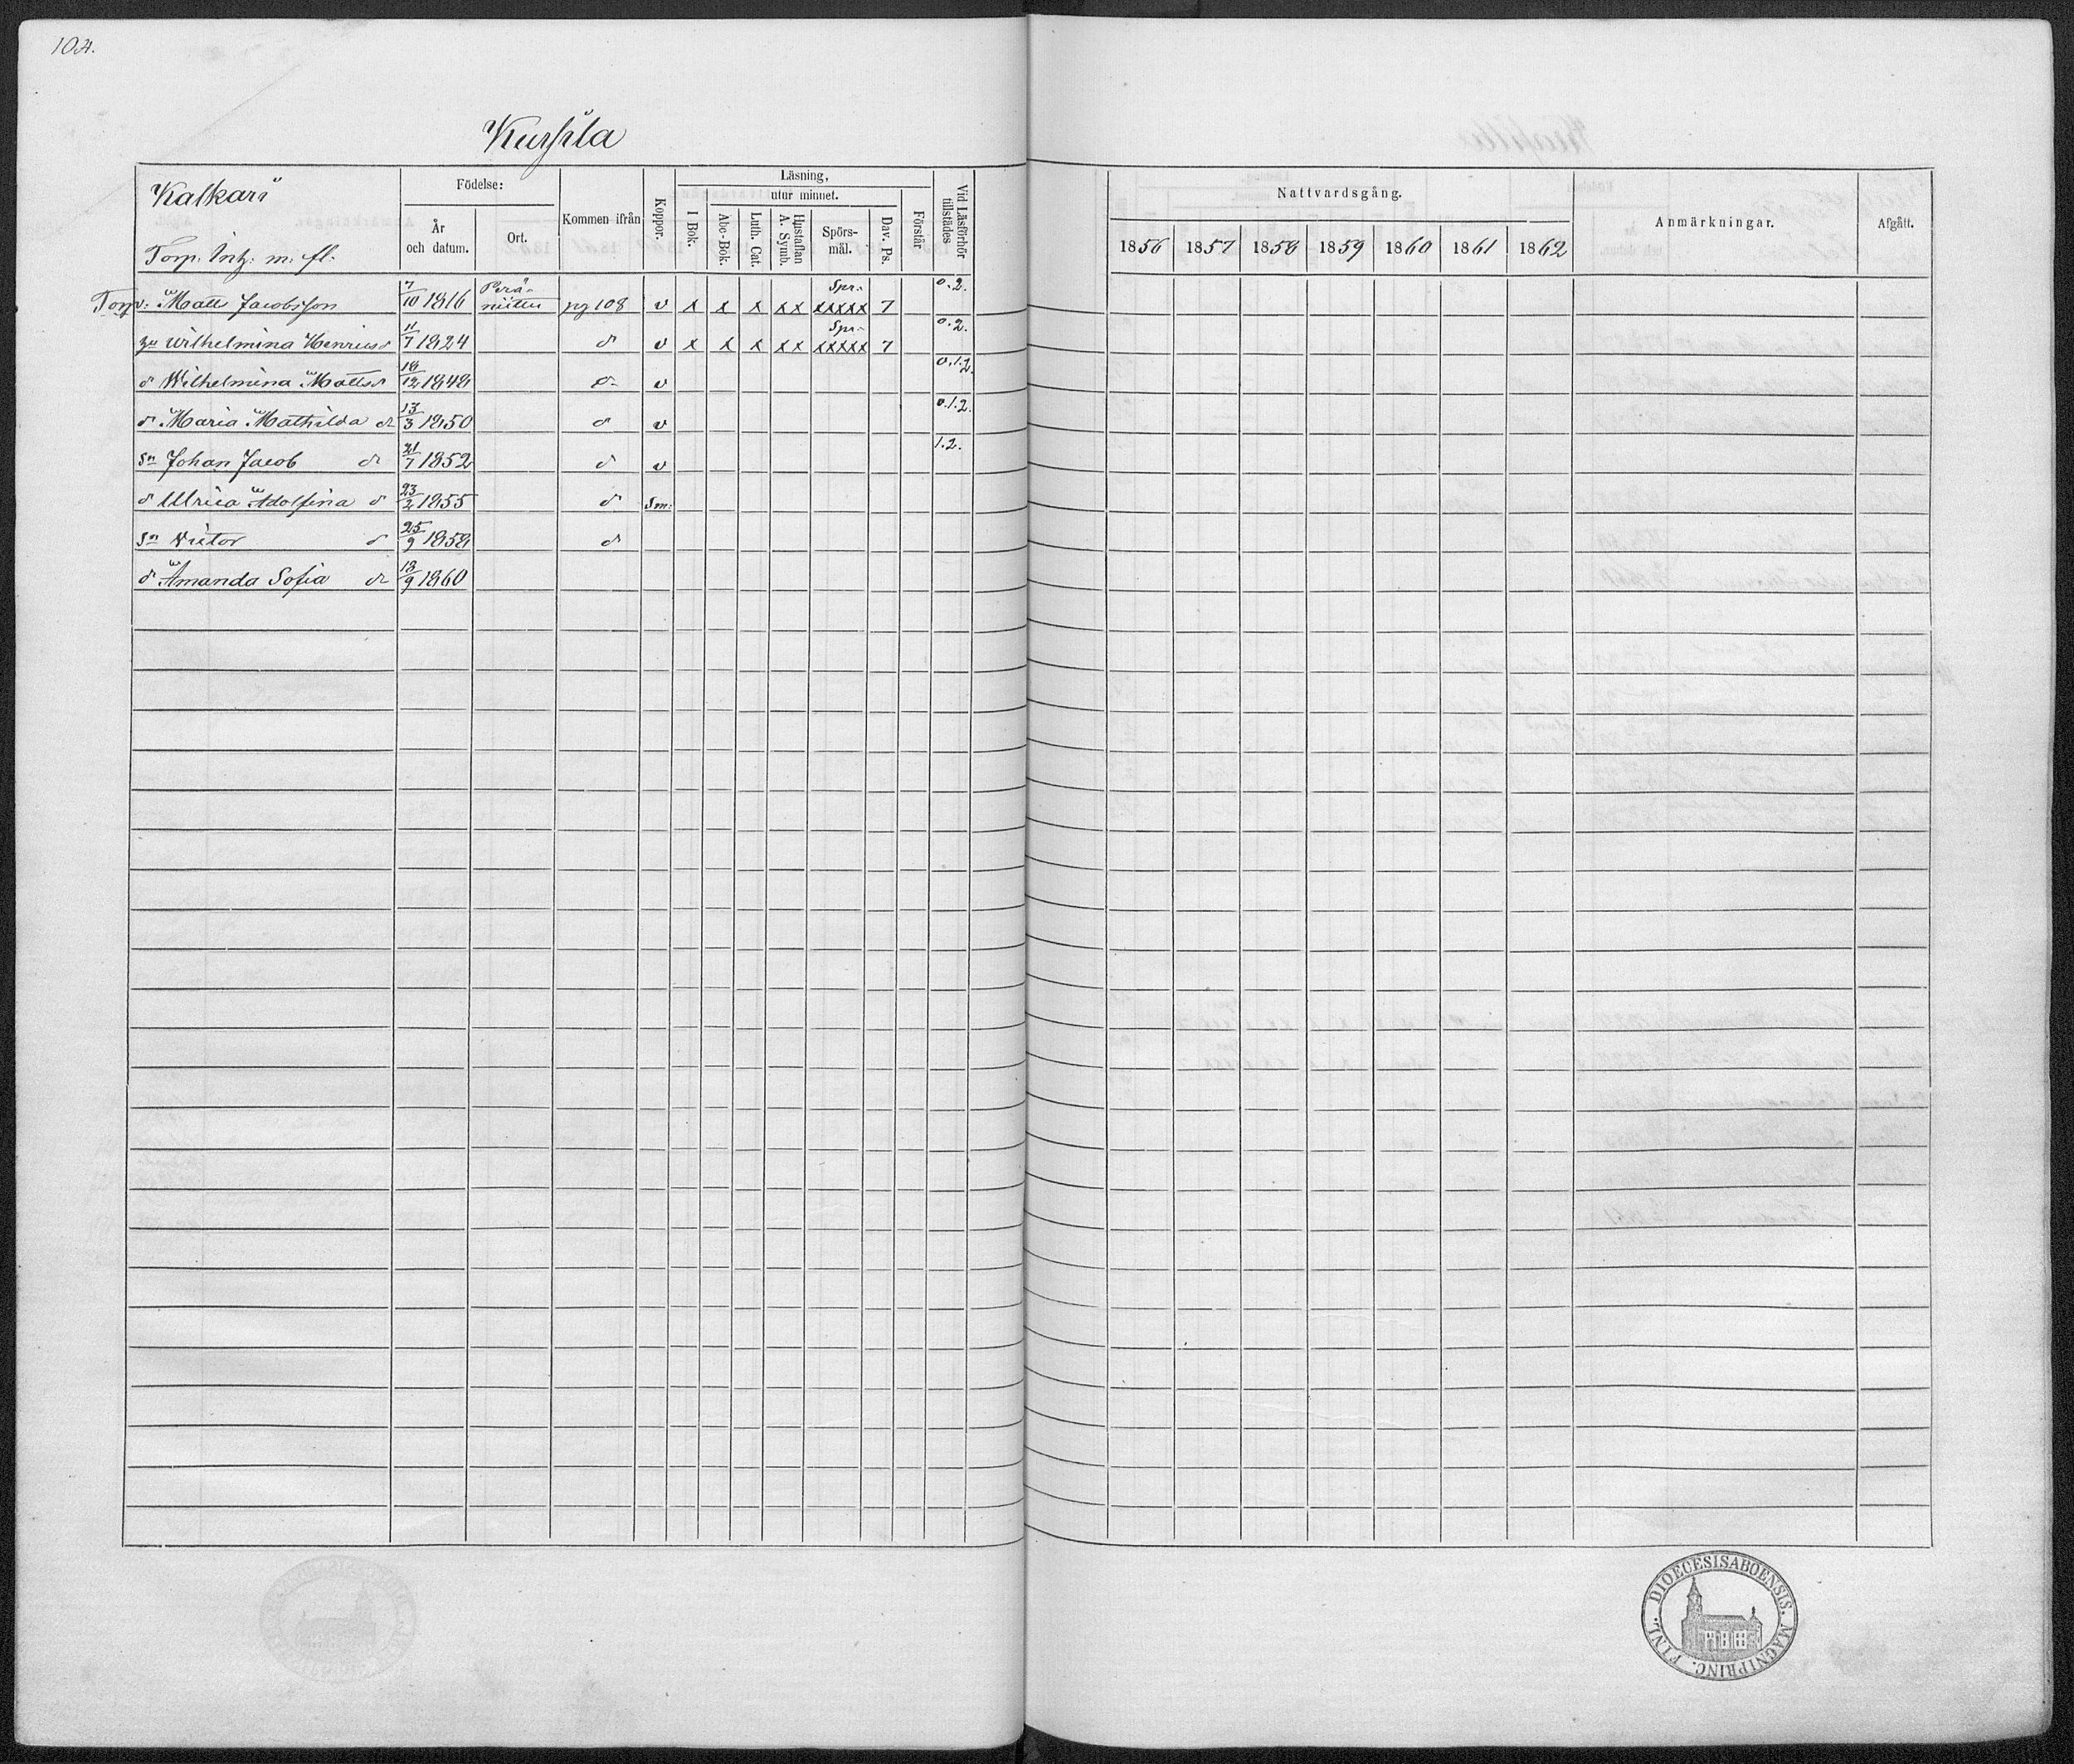 104.
Kurkila
Kalkari
Torp. Intz. m. fl.
Födelse:
År och datum.
Ort.
Kommen ifrån
Koppor.
Läsning,
utur minnet.
I Bok.
Abc-Bok.
Luth. Cat.
Hustaflan A. Symb.
Spörs-mål.
Dav. Ps.
Förstår
Vid Läsförhör tillstädes
Nattvardsgång.
1856 1857 1858 1859 1860 1861 1862
Anmärkningar.
Afgått.
Torp. Matts Jacobsson 7/10 1816 Perä-niittu pg 108 v x x x xx Spr. xxxxx 7 0.2.
hu Wilhelmina Henricsd 11/7 1824 d v x x x xx Spr. xxxxx 7 0.2.
d Wilhelmina Mattsd 18/12 1848 d v 0.1.2.
d Maria Mathilda d 13/3 1850 d v 0.1.2.
Sn Johan Jacob d 21/7 1852 d v 1.2.
d Ulrica Adolfina d 23/2 1855 d Sm:
Sn Victor d 25/9 1858 d
d Amanda Sofia d 18/9 1860
DIOECESIS ABOENSIS. MAGNI PRINC. FINL.